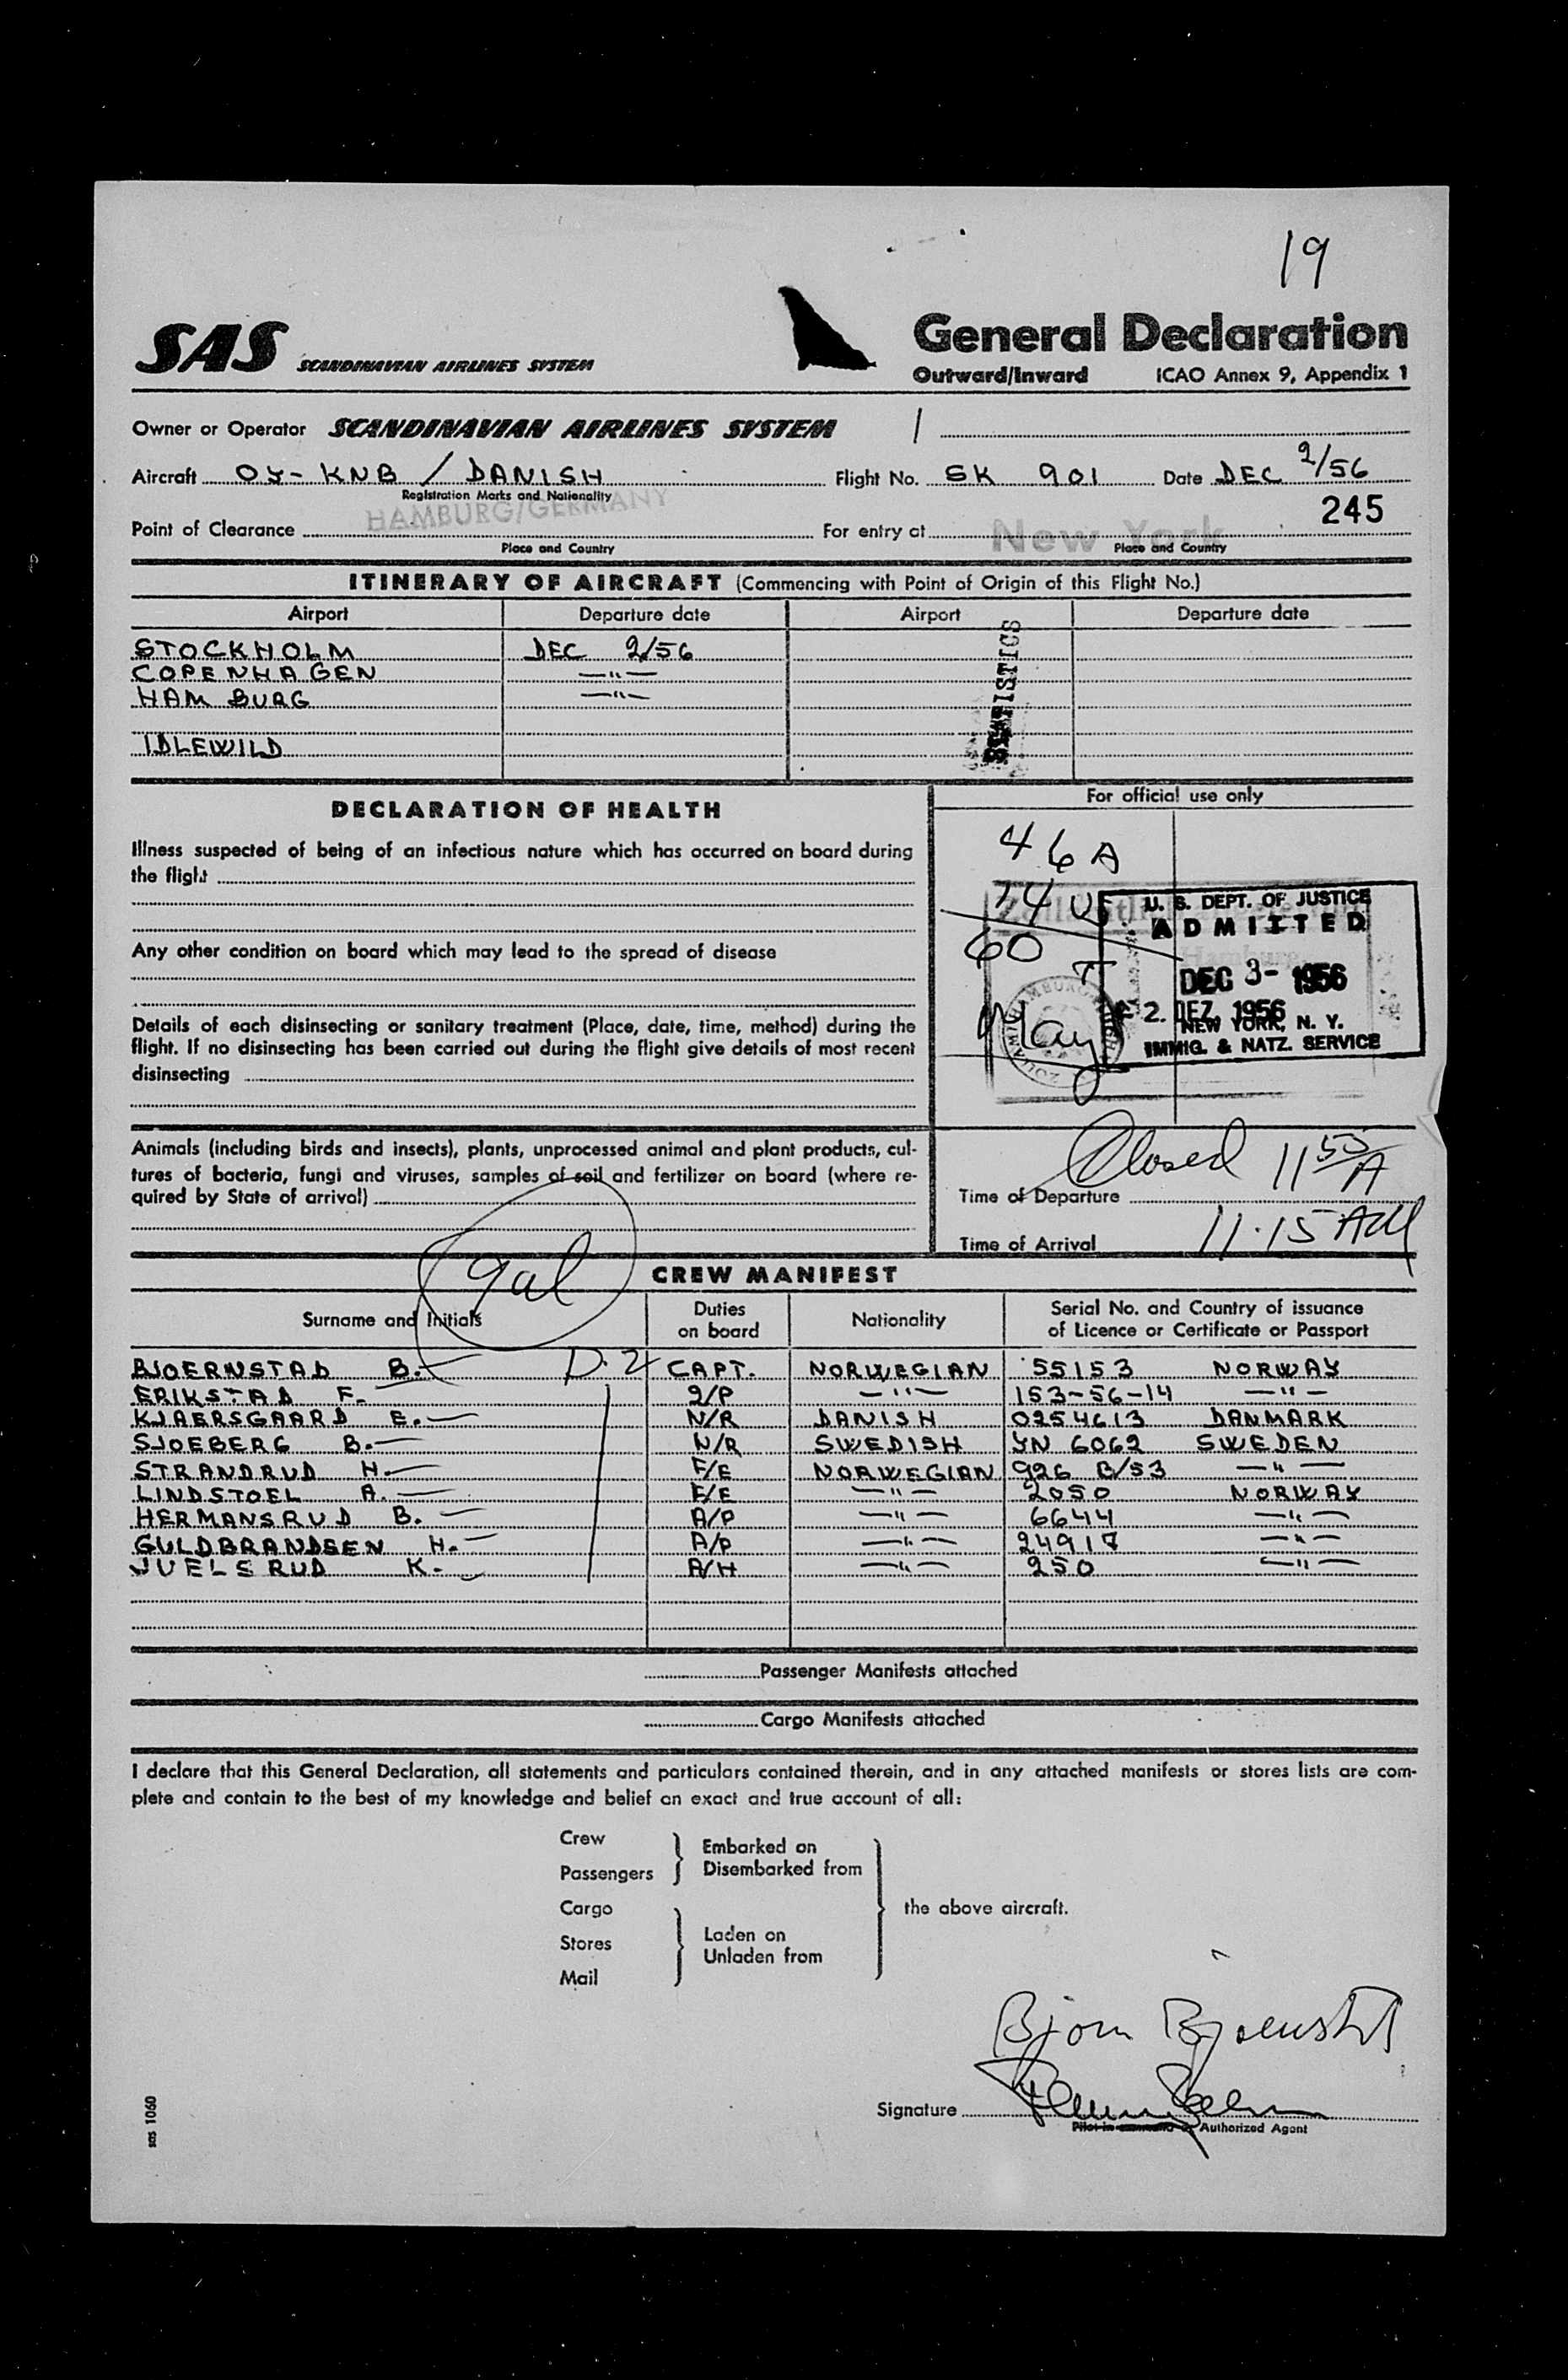 19
SAS SCANDINAVIAN AIRLINES SYSTEM
General Declaration
Outward/Inward ICAO Annex 9, Appendix 1
Owner or Operator SCANDINAVIAN AIRLINES SYSTEM
Aircraft OY-KNB / DANISH Flight No. SK 901 Date DEC 2/56
Registration Marks and Nationality
245
Point of Clearance HAMBURG/GERMANY For entry at New York
Place and Country Place and Country
ITINERARY OF AIRCRAFT (Commencing with Point of Origin of this Flight No.)
Airport Departure date Airport Departure date
STOCKHOLM DEC 2/56
COPENHAGEN —"—
HAMBURG —"—
IDLEWILD
STATISTICS
DECLARATION OF HEALTH
For official use only
Illness suspected of being of an infectious nature which has occurred on board during
the flight
Any other condition on board which may lead to the spread of disease
Details of each disinsecting or sanitary treatment (Place, date, time, method) during the
flight. If no disinsecting has been carried out during the flight give details of most recent
disinsecting
46 A
14 US
60 T
U. S. DEPT. OF JUSTICE
ADMITTED
Hamburg
DEC 3- 1956
2. DEZ. 1956
NEW YORK, N. Y.
IMMIG. & NATZ. SERVICE
Animals (including birds and insects), plants, unprocessed animal and plant products, cul-
tures of bacteria, fungi and viruses, samples of soil and fertilizer on board (where re-
quired by State of arrival)
Closed 11 55/A
Time of Departure
Time of Arrival 11.15 AM
CREW MANIFEST
Surname and Initials Duties on board Nationality Serial No. and Country of issuance of Licence or Certificate or Passport
BJOERNSTAD B. D.2 CAPT. NORWEGIAN 55153 NORWAY
ERIKSTAD F. 2/P —"— 153-56-14 —"—
KJAERSGAARD E. N/R DANISH 0254613 DANMARK
SJOEBERG B. N/R SWEDISH YN 6062 SWEDEN
STRANDRUD H. F/E NORWEGIAN 926 B/53 —"—
LINDSTOEL A. F/E —"— 2050 NORWAY
HERMANSRUD B. A/P —"— 6644 —"—
GULDBRANDSEN H. A/P —"— 24917 —"—
JUELSRUD K. A/H —"— 250 —"—
Passenger Manifests attached
Cargo Manifests attached
I declare that this General Declaration, all statements and particulars contained therein, and in any attached manifests or stores lists are com-
plete and contain to the best of my knowledge and belief an exact and true account of all:
Crew
Passengers
Embarked on
Disembarked from
Cargo
Stores
Mail
Laden on
Unladen from
the above aircraft.
Bjorn Bjoernstad
Signature
Pilot in command or Authorized Agent
sas 1060